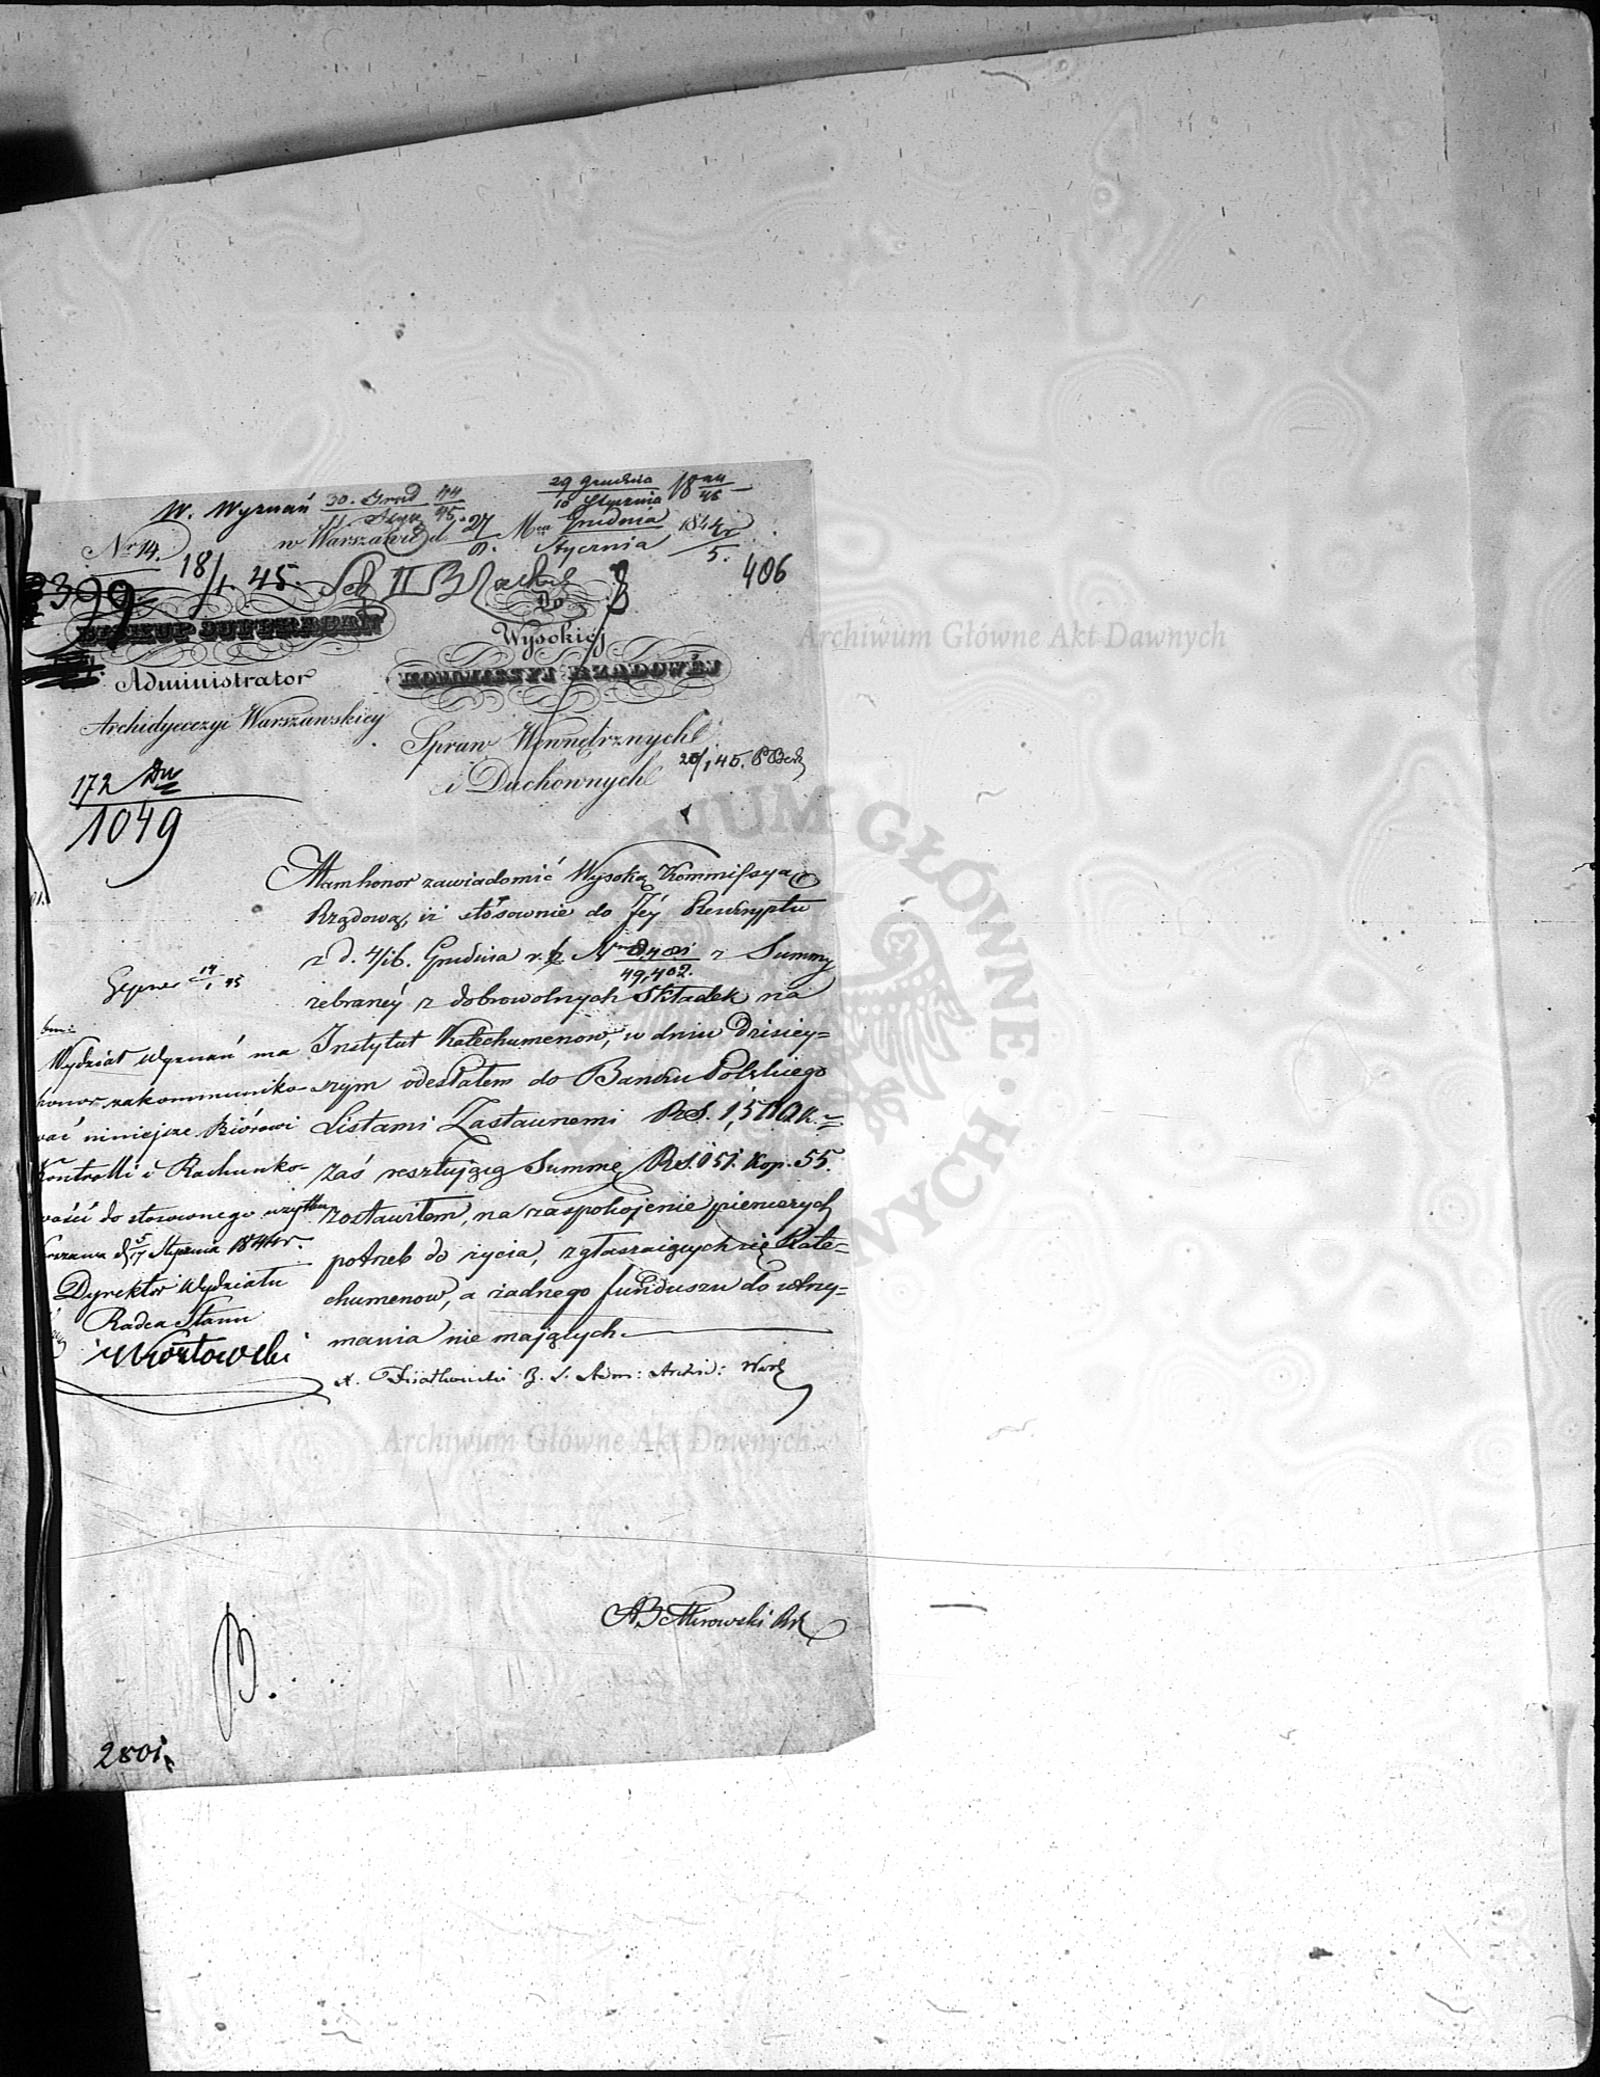 W. Wyznań 30. Grud 44
11 Stycz 45.
29 Grudnia
10 Stycznia 18 44
45
Nr 14.
w Warszawie d 27 Mca Grudnia 1844r
8. Stycznia 5.
399
18/1 45. Sek II B Rachub
406
BISKUP SUFFRAGAN
Administrator
Archidyecezyi Warszawskiey
Do
Wysokiej
KOMMISSYI RZĄDOWÉJ
Spraw Wewnętrznych
i Duchownych
20/1 45.
172
1049
Mam honor zawiadomić Wysoką Kommissyą
Rządową, iż stósownie do Jéy Reskryptu
z d. 4/16. Grudnia r. z. Nro
49,402. z Summy
zebranéy z dobrowolnych Składek na
Instytut Katechumenow, w dniu dzisiey=
szym odesłałem do Banku Polskiego
Listami Zastawnemi RS. 1,500 k. =
zaś resztującą Summę RS. 51. Kop. 55.
zostawiłem, na zaspokojenie pierwszych
potrzeb do życia, zgłaszaiących się Kate=
chumenow, a żadnego funduszu do utrzy=
mania nie mających.
X. Fiiałkowski B. S. Adm: Archid: Warsz
14
1 45
Wydział Wyznań ma
honor zakommuniko-
wać niniejsze Biórowi
Kontrolli i Rachunko-
wości do stosownego użytku
Warszawa d 5/17 Stycznia 184 r.
Dyrektor Wydziału
Radca Stanu
2801
Archiwum Główne Akt Dawnych
ARCHIWUM GŁÓWNE AKT DAWNYCH
Archiwum Główne Akt Dawnych